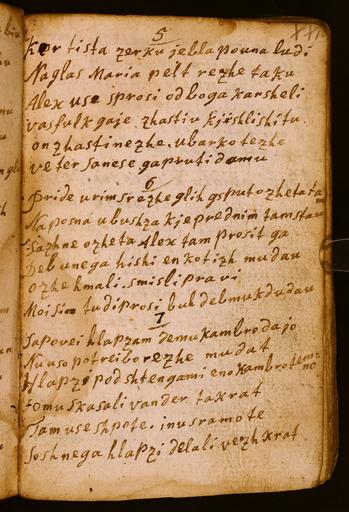 5
Ker tista zerku je bla pouna ludi
Naglas Maria pelt rezhe taku
Alex use sprosi od boga karsheli
vasfulk gaje zhastiu kjeshlishitu
on zhastinezhe ubarkotezhe
ve ter sanese gapruti damu
6
Pride urimsrezhe glih gsput ozhetata
Naposna ubushza kje prednim tam stau
Sazhne ozheta Alex tam prosit ga
Deb unega hishi en kotizh mu dau
ozhe kmali smisli pravi
Moi sin tudi prosi bul debmuk du dau
7
Sapovei hlapzam demu kambro dajo
Nu uso potreibo rezhe mu dat
Hlapzi pod shtengami eno kambrotemno
omu skasali vander takrat
Tam use shpote inu sramote
Sosh nega hlapzi delali vezhkrat